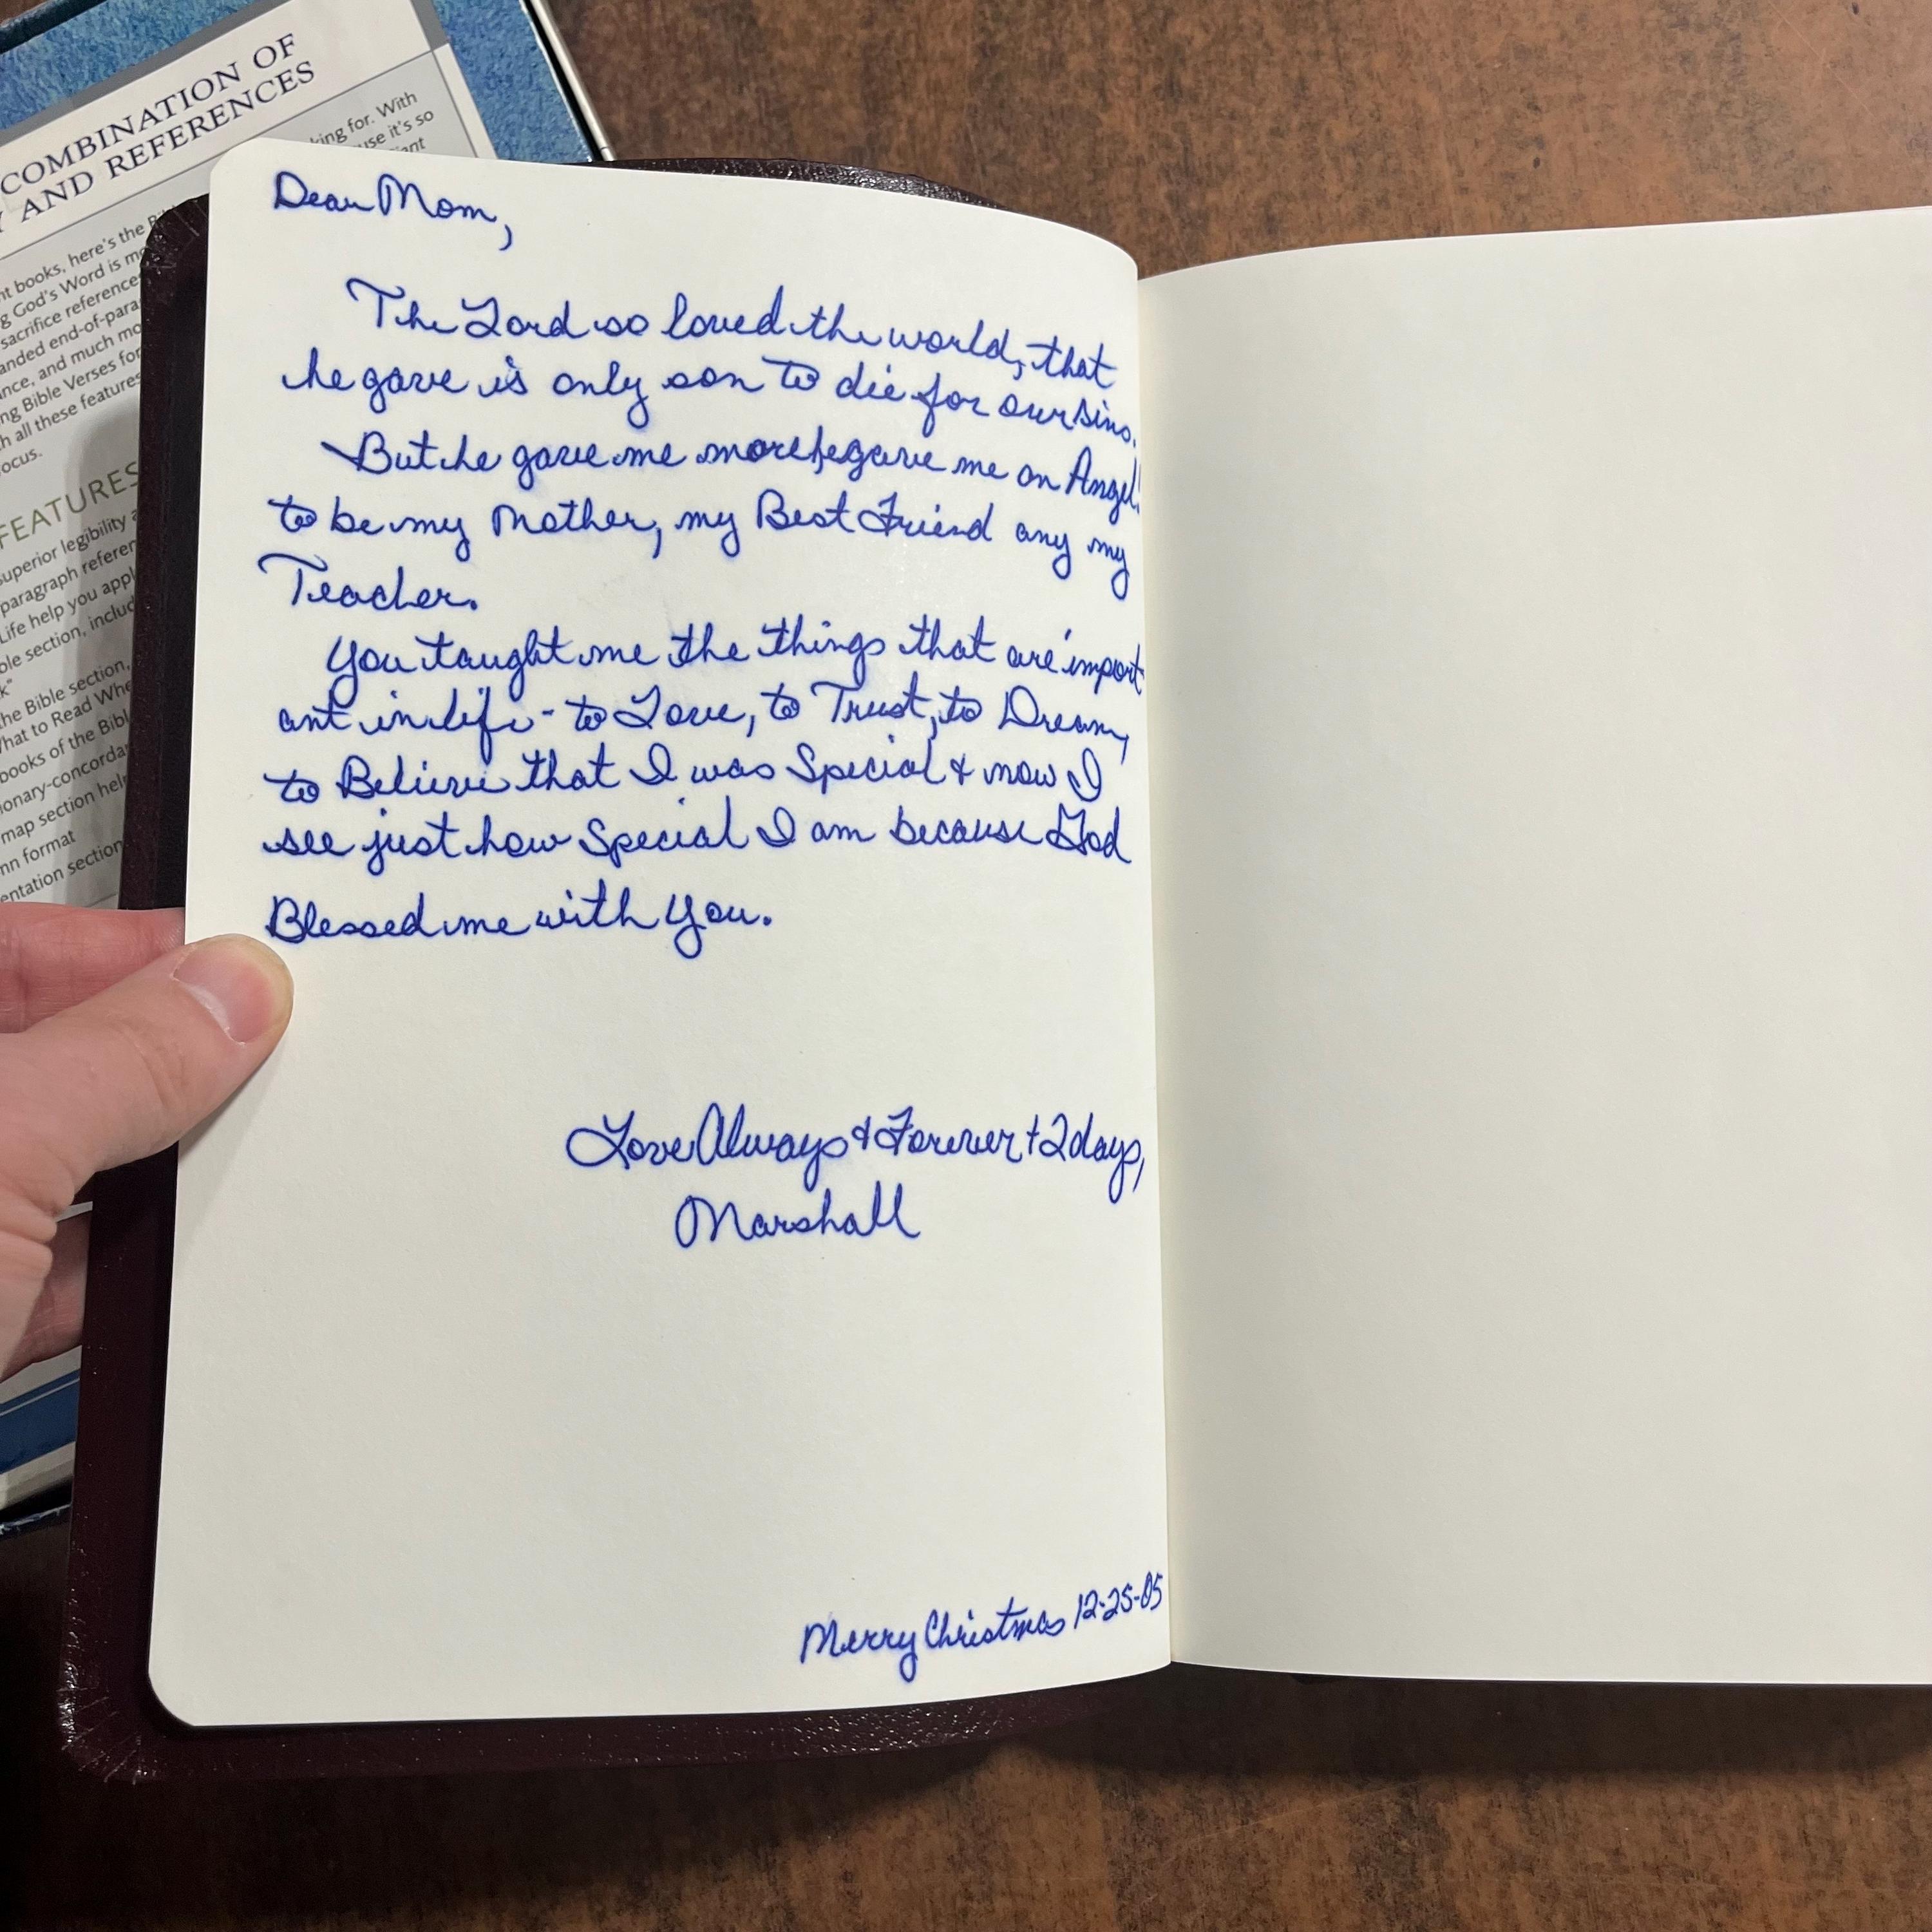 COMBINATION OF
Y AND REFERENCES
king for. With
use it's so
iant
nt books, here's the
g God's Word is
sacrifice reference
anded end-of-para
ance, and much mo
ng Bible Verses for
h all these features
ocus.
FEATURES
superior legibility a
paragraph referen
Life help you appl
ble section, includ
k"
the Bible section,
What to Read Whe
books of the Bibl
ionary-concorda
map section help
mn format
entation section
Dear Mom,
The Lord so loved the world, that
he gave is only son to die for our sins.
But he gave me more he gave me an Angel!
to be my Mother, my Best Friend any my
Teacher.
You taught me the things that are import
ant in life - to Love, to Trust, to Dream,
to Believe that I was Special & now I
see just how Special I am because God
Blessed me with you.
Love Always & Forever + 2 days,
Marshall
Merry Christmas 12-25-05